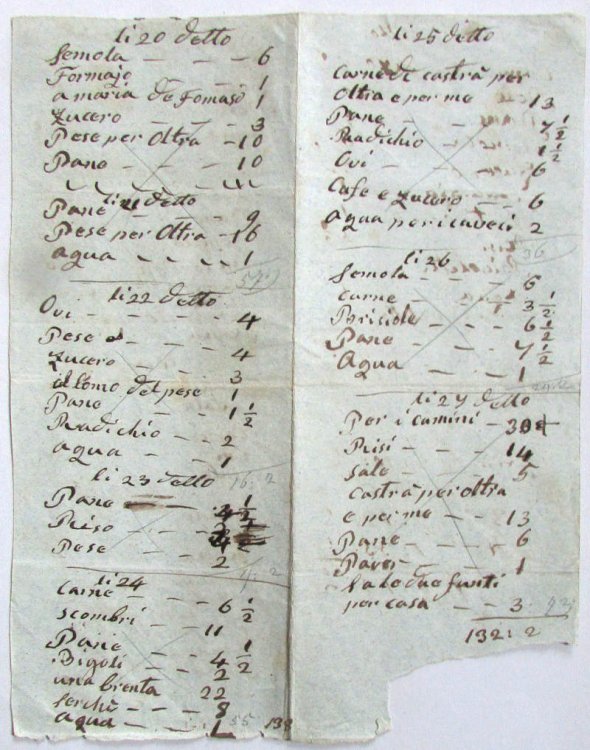 li 20 detto
Semola — — — 6
Formajo — — 1
a maria de Tomaso 1
Zucero — — — 3
Pese per Oltra — 10
Pane — — — 10
li 21 detto
Pane — — — 9
Pese per Oltra — 16
agua — — — 1
li 22 detto
Ovi — — — — 4
Pese — — — 4
Zucero — — 3
il lomo del pese 1
Pane — — 1 1/2
Radichio — — 2
agua — — — 1
16: 2
li 23 detto
Pane 1/2
Riso — — —
Pese — — — 2
li 24
Carne — — — 6 1/2
scombri — — 11
Pane — — 4 1/2
Bigoli — — 2
una brenta 22
Serchi — — — 8
agua — — — 1
55
138
li 25 detto
Carne di castrà per
Oltra e per me — 13
Pane — — — 7 1/2
Radichio — — 1 1/2
Ovi — — — 6
Cafe e zucero — — 6
agua per i caveci 2
36
li 26
Semola — — — 6
Carne — — — 3 1/2
Brisiole — — — 6 1/2
Pane — — — 7 1/2
Agua — — — 1
li 27 detto
Per i camini — 30
Risi — — — 14
Sale — — — 5
Castrà per Oltra
e per me — — 13
Pane — — — 6
Paver — — — 1
due funti
per casa — — 3
132: 2